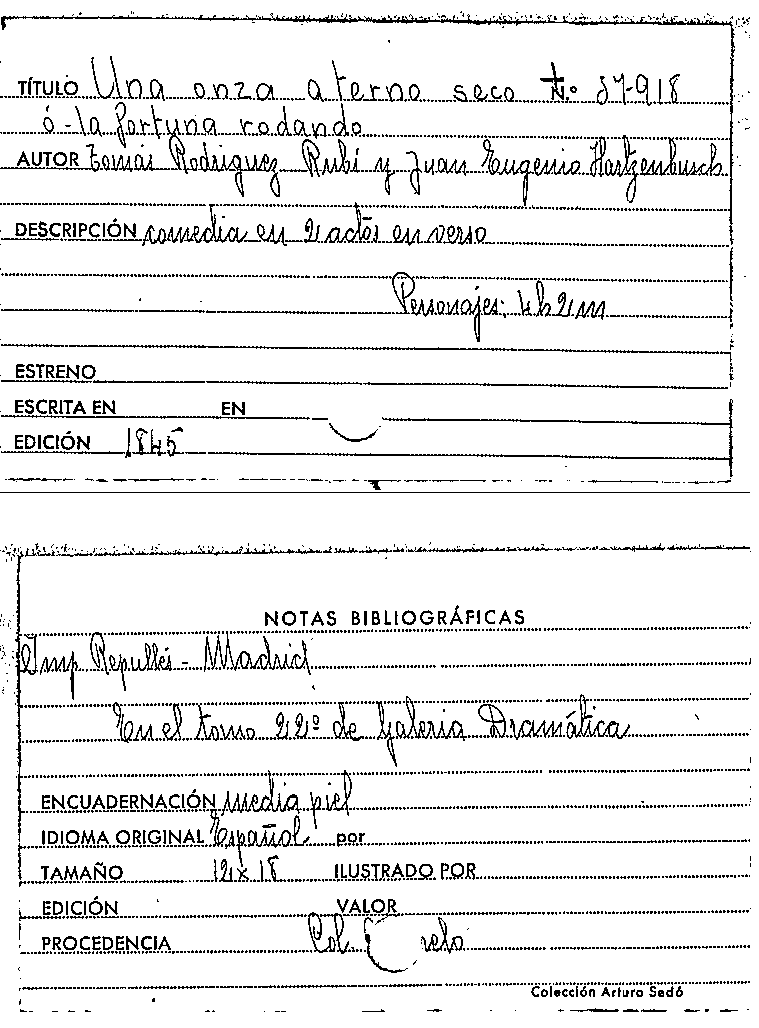 TÍTULO Una onza a terno seco N.º 37-918
ó-la fortuna rodando
AUTOR Tomás Rodriguez Rubí y Juan Eugenio Hartzenbusch
DESCRIPCIÓN comedia en 2 actos en verso
Personajes: 4h 2m
ESTRENO
ESCRITA EN EN
EDICIÓN 1845
NOTAS BIBLIOGRÁFICAS
Imp Repullés - Madrid
En el tomo 22º de Galeria Dramática
ENCUADERNACIÓN media piel
IDIOMA ORIGINAL Español por
TAMAÑO 12x18 ILUSTRADO POR
EDICIÓN VALOR
PROCEDENCIA Col.
Colección Arturo Sedó